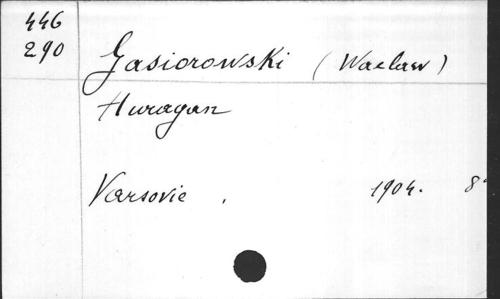 446
290
Gasiorowski (Waclaw)
Huragan
Varsovie, 1904. 8°